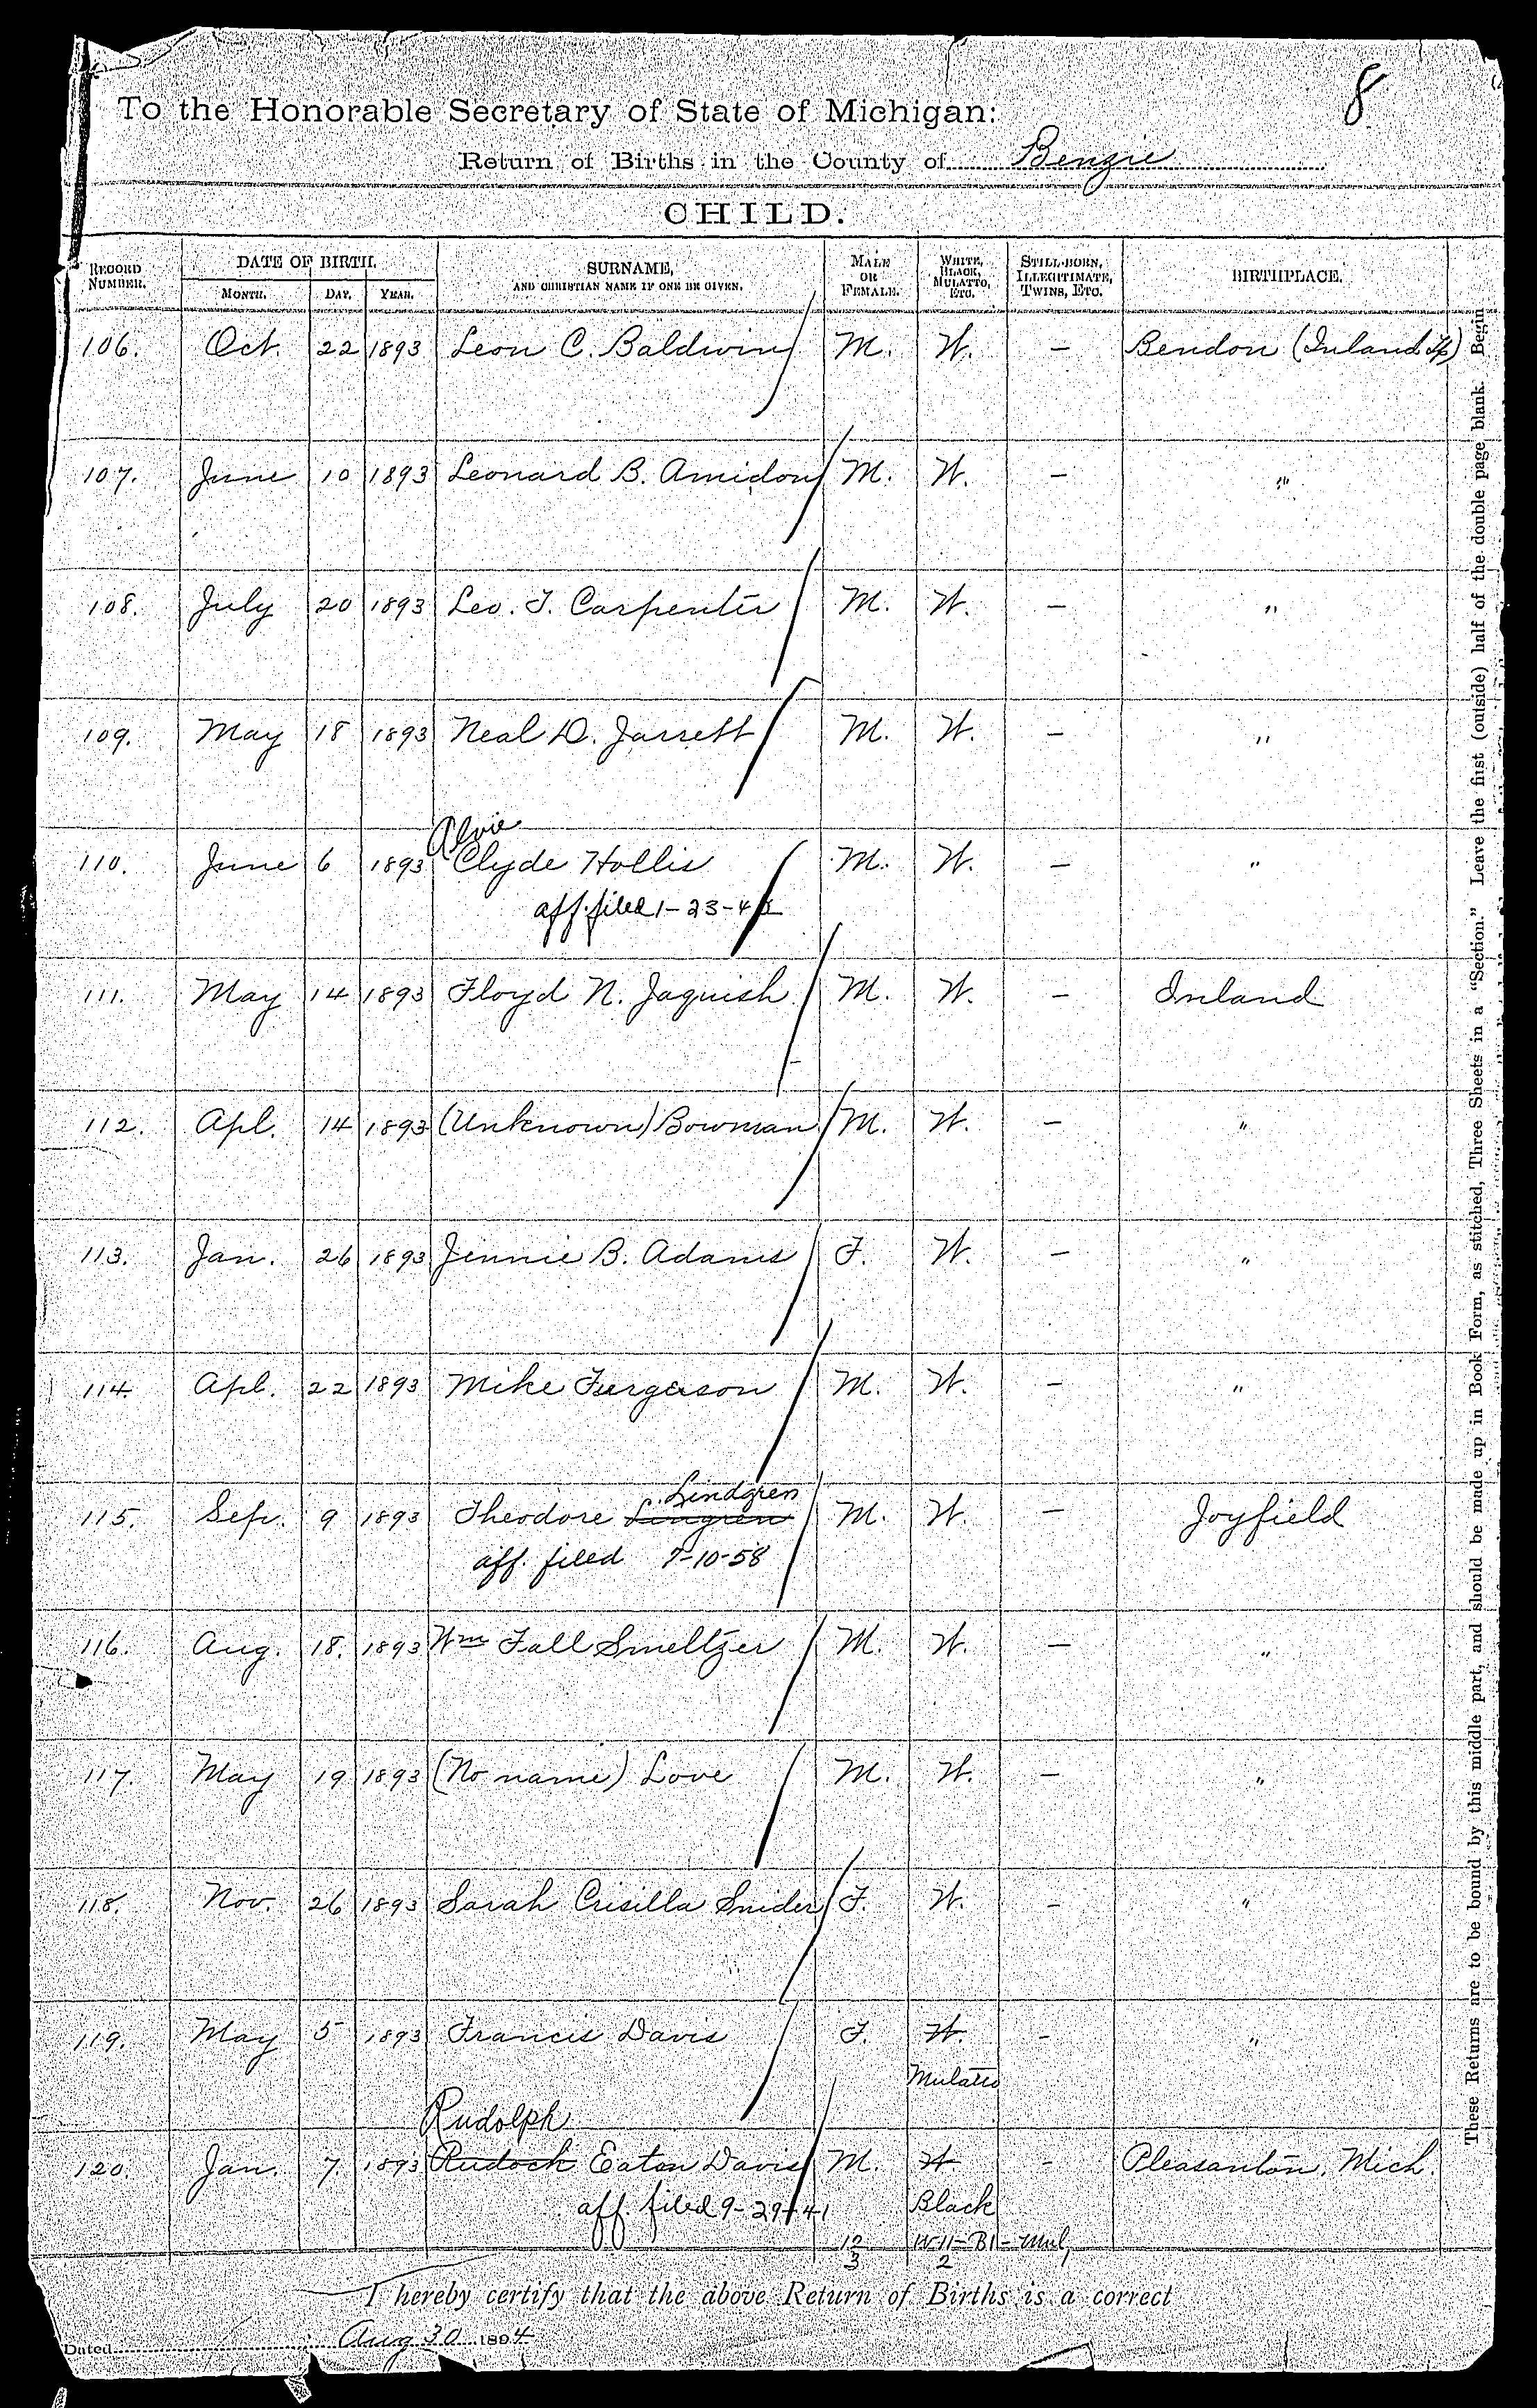 8
To the Honorable Secretary of State of Michigan:
Return of Births in the County of Benzie
CHILD.
RECORD NUMBER. DATE OF BIRTH. MONTH. DAY. YEAR. SURNAME, AND CHRISTIAN NAME IF ONE BE GIVEN. MALE OR FEMALE. WHITE, BLACK, MULATTO, ETC. STILL-BORN, ILLEGITIMATE, TWINS, ETC. BIRTHPLACE.
106. Oct. 22 1893 Leon C. Baldwin M. W. – Bendon (Inland Tp)
107. June 10 1893 Leonard B. Amidon M. W. – "
108. July 20 1893 Leo. T. Carpenter M. W. – "
109. May 18 1893 Neal D. Jarrett M. W. – "
Alvie
110. June 6 1893 Clyde Hollis M. W. – "
aff. filed 1-23-
111. May 14 1893 Floyd N. Jaquish M. W. – Inland
112. Apl. 14 1893 (Unknown) Bowman M. W. – "
113. Jan. 26 1893 Jennie B. Adams F. W. – "
114. Apl. 22 1893 Mike Furgerson M. W. – "
Lindgren
115. Sep. 9 1893 Theodore Lingren M. W. – Joyfield
aff. filed 7-10-58
116. Aug. 18. 1893 Wm Fall Smeltzer M. W. – "
117. May 19 1893 (No name) Love M. W. – "
118. Nov. 26 1893 Sarah Crisilla Snider F. W. – "
119. May 5 1893 Francis Davis F. W. – "
Mulatto
Rudolph
120. Jan. 7. 1893 Rudock Eaton Davis M. W. – Pleasanton, Mich.
aff. filed 9-29-41 Black
12 W 11 – B 1 – Mul 1
3 2
I hereby certify that the above Return of Births is a correct
Dated Aug 30 1894
These Returns are to be bound by this middle part, and should be made up in Book Form, as stitched, Three Sheets in a "Section." Leave the first (outside) half of the double page blank. Begin